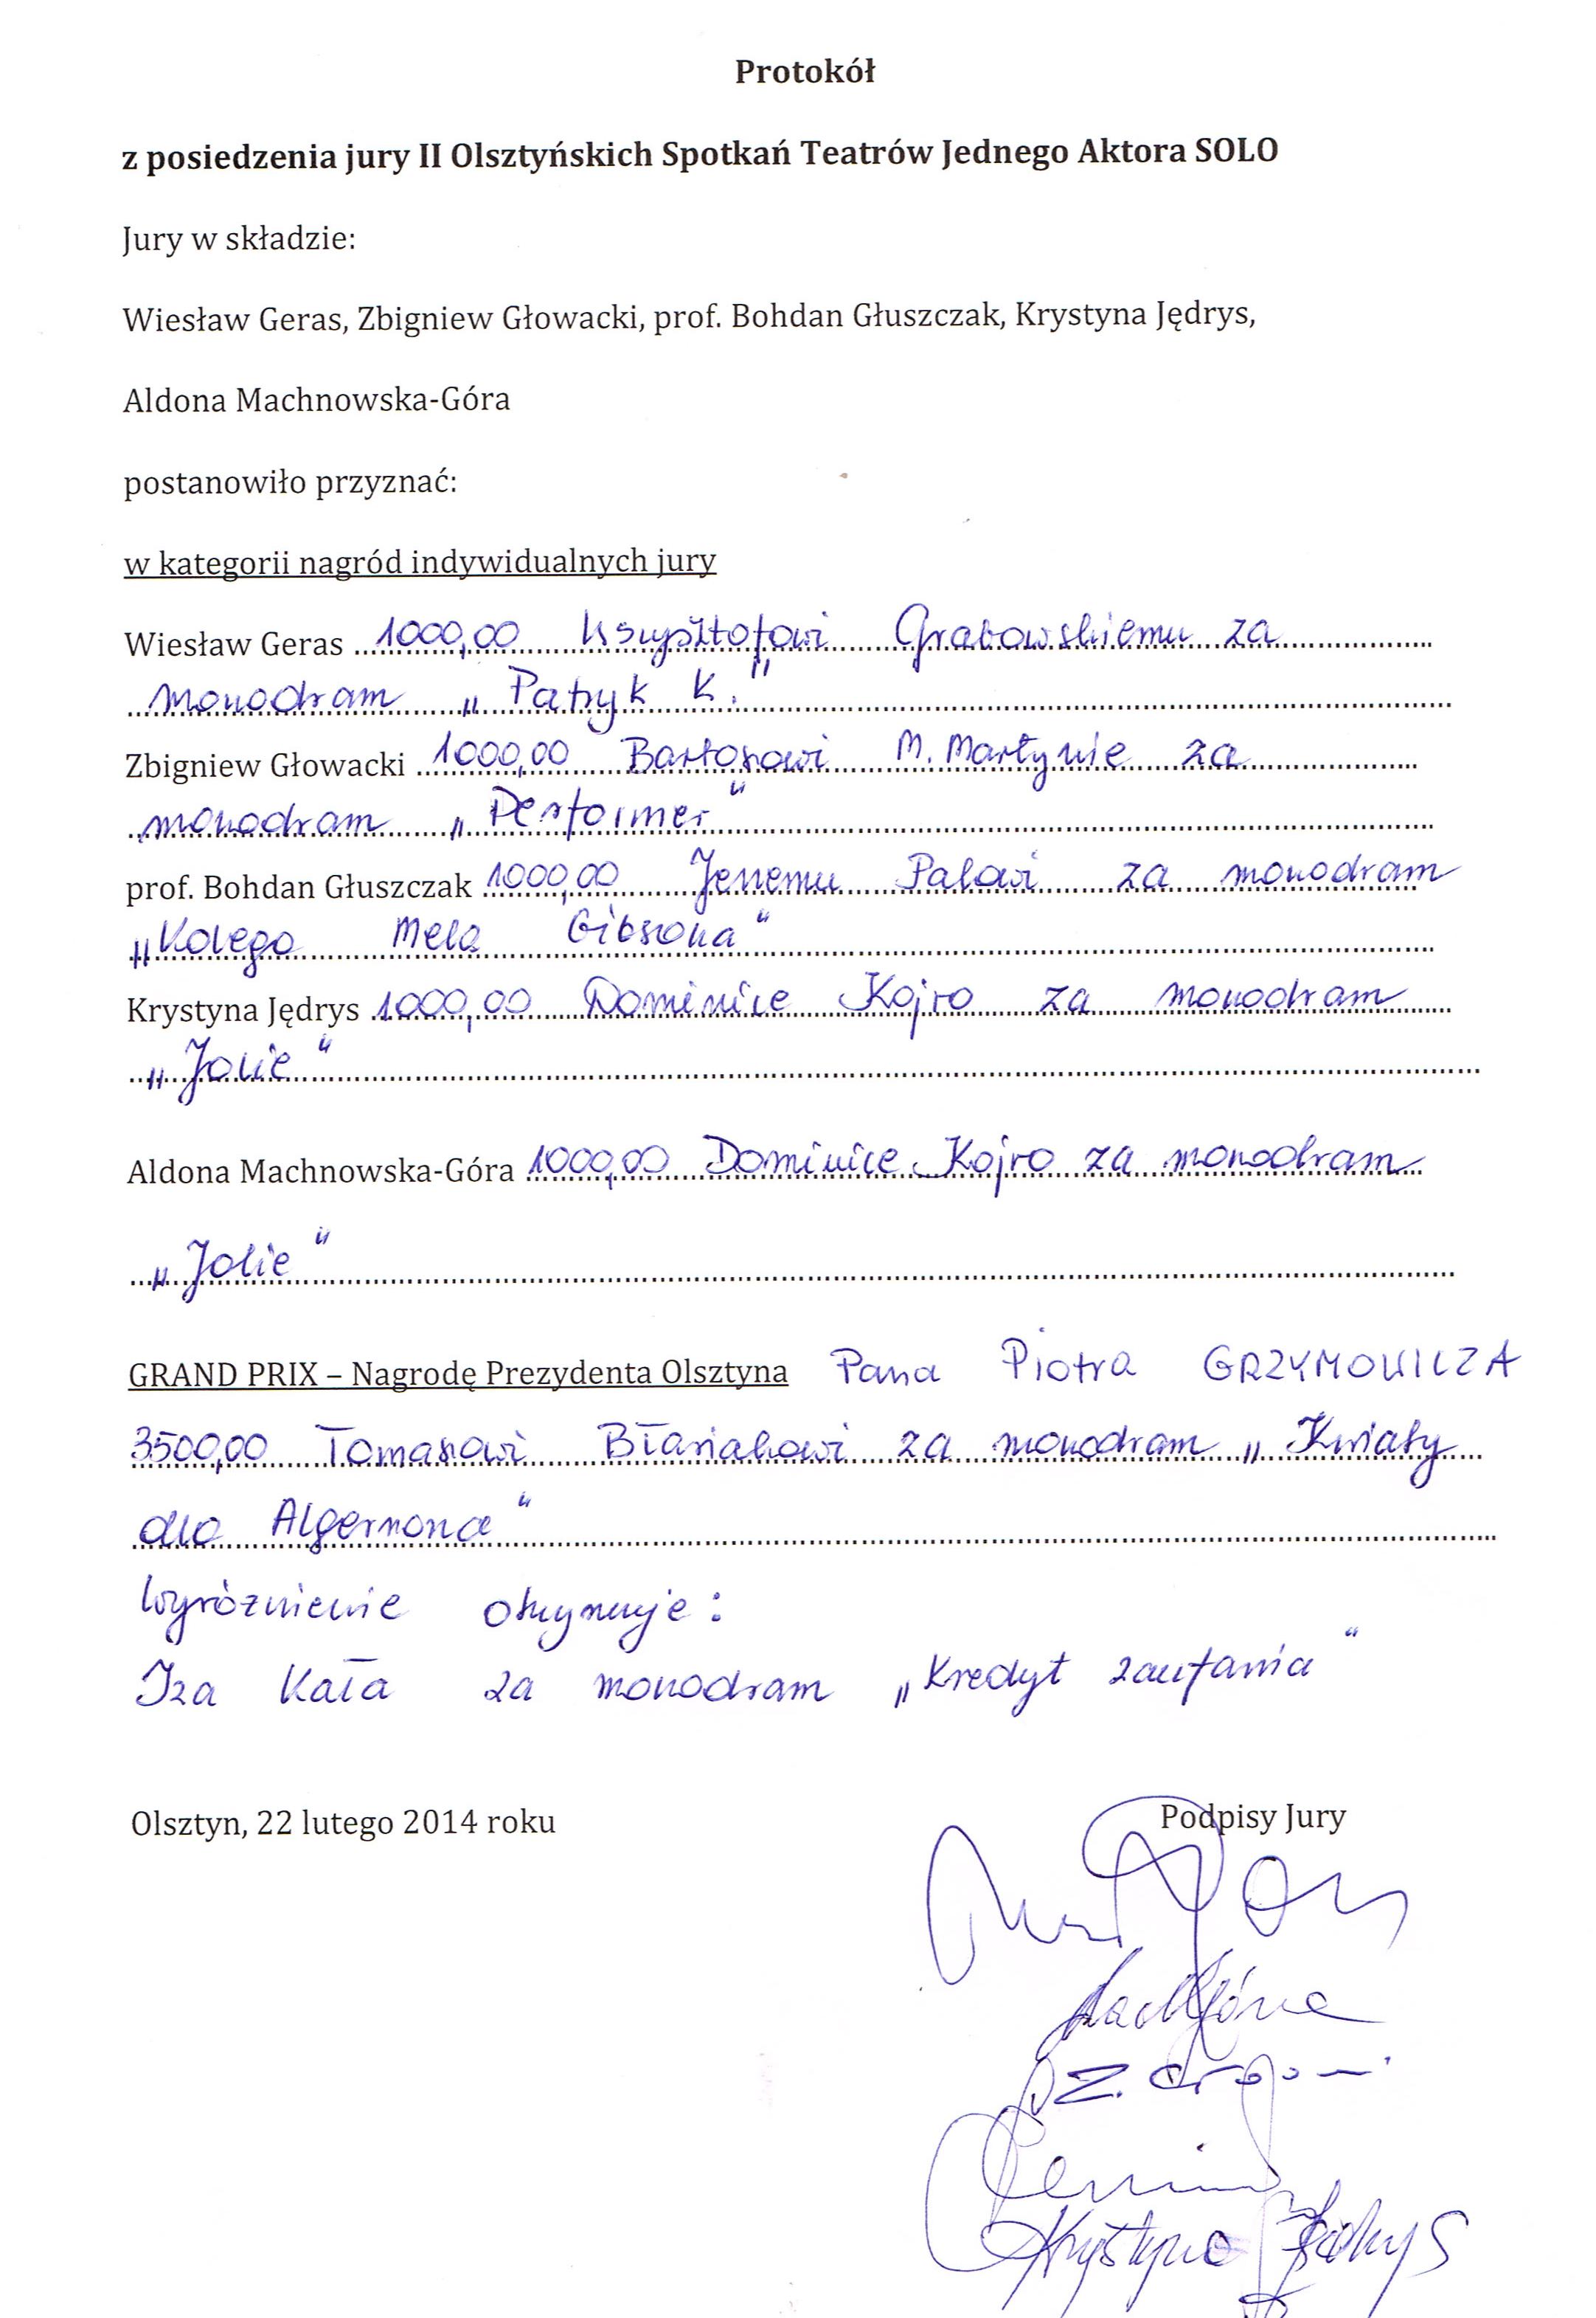 Protokół
z posiedzenia jury II Olsztyńskich Spotkań Teatrów Jednego Aktora SOLO
Jury w składzie:
Wiesław Geras, Zbigniew Głowacki, prof. Bohdan Głuszczak, Krystyna Jędrys,
Aldona Machnowska-Góra
postanowiło przyznać:
w kategorii nagród indywidualnych jury
Wiesław Geras 1000,00 Krzysztofowi Grabowskiemu za
monodram „Patryk K."
Zbigniew Głowacki 1000,00 Bartoszowi M. Martynie za
monodram „Performer"
prof. Bohdan Głuszczak 1000,00 Jerzemu Palowi za monodram
„Kolega Mela Gibsona"
Krystyna Jędrys 1000,00 Dominice Kojro za monodram
„Jolie"
Aldona Machnowska-Góra 1000,00 Dominice Kojro za monodram
„Jolie"
GRAND PRIX – Nagrodę Prezydenta Olsztyna Pana Piotra GRZYMOWICZA
3500,00 Tomaszowi Błasiakowi za monodram „Kwiaty
dla Algernona"
Wyróżnienie otrzymuje:
Iza Kała za monodram „Kredyt zaufania"
Olsztyn, 22 lutego 2014 roku Podpisy Jury
Krystyna Jędrys